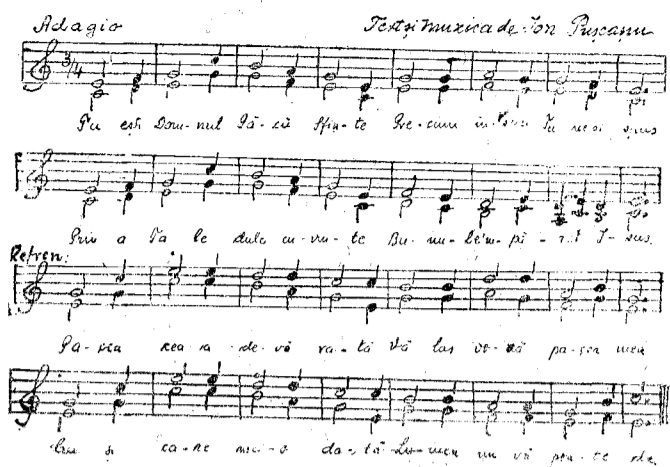 Adagio Text și muzica de Ion Pușcașu
3/4
Tu ești Dom-nul Pă-cii Sfin-te Pre-cum Tu ne-ai spus
Prin a Ta-le dulci cu-vin-te Bu-nu-le Je-sus.
Refren:
Pa-cea cea a-de-vă-ra-tă Vă las vo-uă pa-cea mea
Cum și ca-re nici-o da-tă Lu-mea nu vă poa-te da.